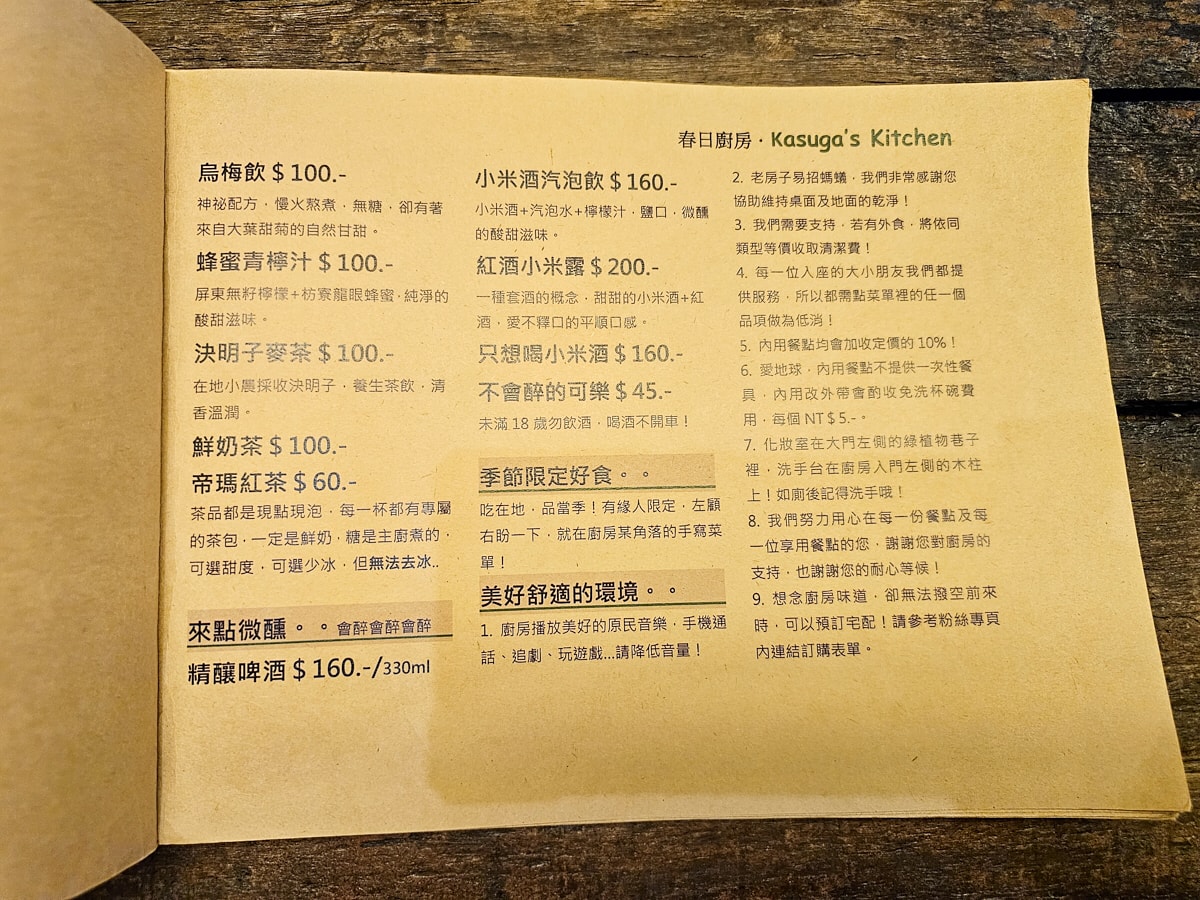 春日廚房・Kasuga's Kitchen
烏梅飲 $ 100.-
神祕配方，慢火熬煮，無糖，卻有著
來自大葉甜菊的自然甘甜。
蜂蜜青檸汁 $ 100.-
屏東無籽檸檬+枋寮龍眼蜂蜜，純淨的
酸甜滋味。
決明子麥茶 $ 100.-
在地小農採收決明子，養生茶飲，清
香溫潤。
鮮奶茶 $ 100.-
帝瑪紅茶 $ 60.-
茶品都是現點現泡，每一杯都有專屬
的茶包，一定是鮮奶，糖是主廚煮的，
可選甜度，可選少冰，但無法去冰..
來點微醺。。會醉會醉會醉
精釀啤酒 $ 160.-/330ml
小米酒汽泡飲 $ 160.-
小米酒+汽泡水+檸檬汁，鹽口，微醺
的酸甜滋味。
紅酒小米露 $ 200.-
一種套酒的概念，甜甜的小米酒+紅
酒，愛不釋口的平順口感。
只想喝小米酒 $ 160.-
不會醉的可樂 $ 45.-
未滿 18 歲勿飲酒，喝酒不開車！
季節限定好食。。
吃在地，品當季！有緣人限定，左顧
右盼一下，就在廚房某角落的手寫菜
單！
美好舒適的環境。。
1. 廚房播放美好的原民音樂，手機通
話、追劇、玩遊戲...請降低音量！
2. 老房子易招螞蟻，我們非常感謝您
協助維持桌面及地面的乾淨！
3. 我們需要支持，若有外食，將依同
類型等價收取清潔費！
4. 每一位入座的大小朋友我們都提
供服務，所以都需點菜單裡的任一個
品項做為低消！
5. 內用餐點均會加收定價的 10%！
6. 愛地球，內用餐點不提供一次性餐
具，內用改外帶會酌收免洗杯碗費
用，每個 NT $ 5.-。
7. 化妝室在大門左側的綠植物巷子
裡，洗手台在廚房入門左側的木柱
上！如廁後記得洗手哦！
8. 我們努力用心在每一份餐點及每
一位享用餐點的您，謝謝您對廚房的
支持，也謝謝您的耐心等候！
9. 想念廚房味道，卻無法撥空前來
時，可以預訂宅配！請參考粉絲專頁
內連結訂購表單。